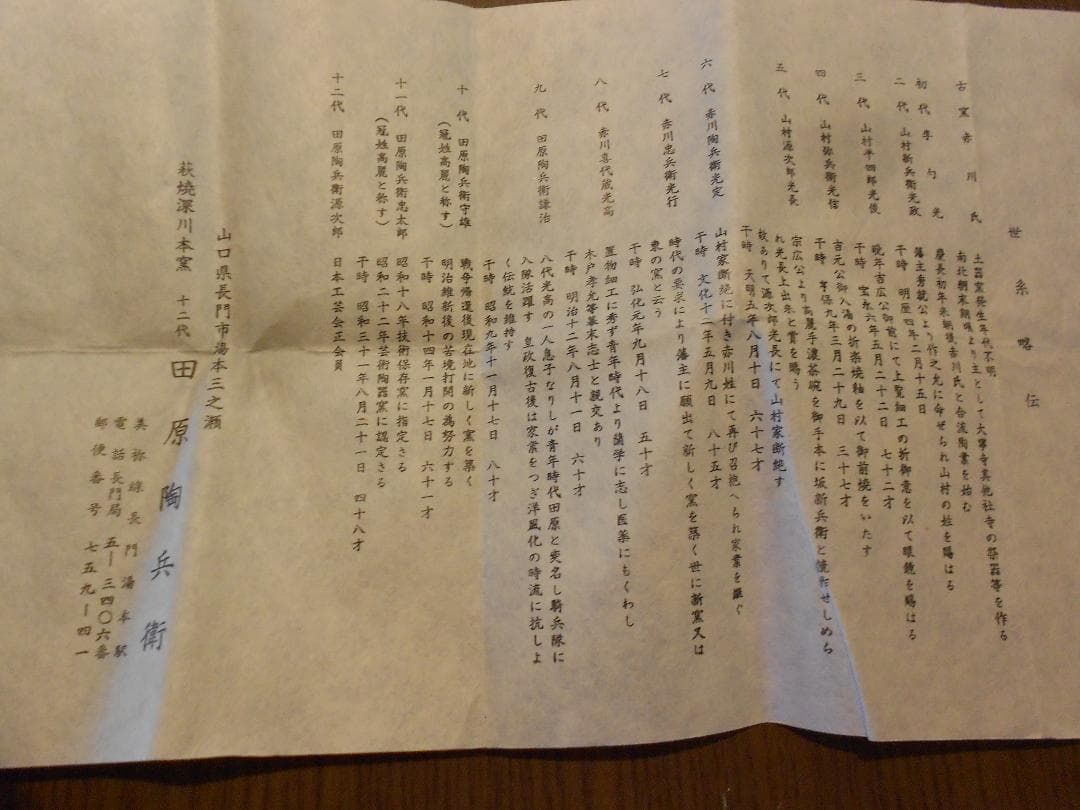 世系略伝
古窯赤川氏 土器窯発生年代不明
南北朝末期頃より主として大寧寺其他社寺の祭器等を作る
初代 李勺光 慶長初年来朝後赤川氏と合流陶業を始む
藩主秀就公より作之允に命せられ山村の姓を賜はる
二代 山村新兵衛光政 干時 明歴四年二月十五日
晩年吉広公御前にて上覧細工の折御意を以て眼鏡を賜はる
三代 山村平四郎光俊 干時 宝永六年五月二十二日 七十二才
吉元公御入湯の折楽焼釉を以て御前焼をいたす
四代 山村弥兵衛光信 干時 享保九年三月二十九日 三十七才
宗広公より高麗手濃茶碗を御手本に坂新兵衛と競作せしめら
れ光長上出来と賞を賜う
五代 山村源次郎光長 故ありて源次郎光長にて山村家断絶す
干時 天明五年八月十日 六十七才
山村家断絶に付き赤川姓にて再び召抱へられ家業を継ぐ
六代 赤川陶兵衛光定 干時 文化十二年五月九日 八十五才
時代の要求により藩主に願出て新しく窯を築く世に新窯又は
東の窯と云う
七代 赤川忠兵衛光行 干時 弘化元年九月十八日 五十才
置物細工に秀ず青年時代より蘭学に志し医薬にもくわし
木戸孝允等幕末志士と親交あり
八代 赤川喜代蔵光高 干時 明治十二年八月十一日 六十才
八代光高の一人息子なりしが青年時代田原と変名し騎兵隊に
入隊活躍す 皇政復古後は家業をつぎ洋風化の時流に抗しよ
く伝統を維持す
九代 田原陶兵衛謙治 干時 昭和九年十一月十七日 八十才
戦争帰還後現在地に新しく窯を築く
明治維新後の苦境打開の為努力する
十代 田原陶兵衛守雄
(冠姓高麗と称す) 干時 昭和十四年一月十七日 六十一才
昭和十八年技術保存窯に指定さる
十一代 田原陶兵衛忠太郎 昭和二十二年芸術陶器窯に認定さる
(冠姓高麗と称す) 干時 昭和三十一年八月二十一日 四十八才
十二代 田原陶兵衛源次郎 日本工芸会正会員
山口県長門市湯本三之瀬
萩焼深川本窯 十二代 田原陶兵衛
美祢線長門湯本駅
電話長門局 五—三四〇六番
郵便番号 七五九—四一